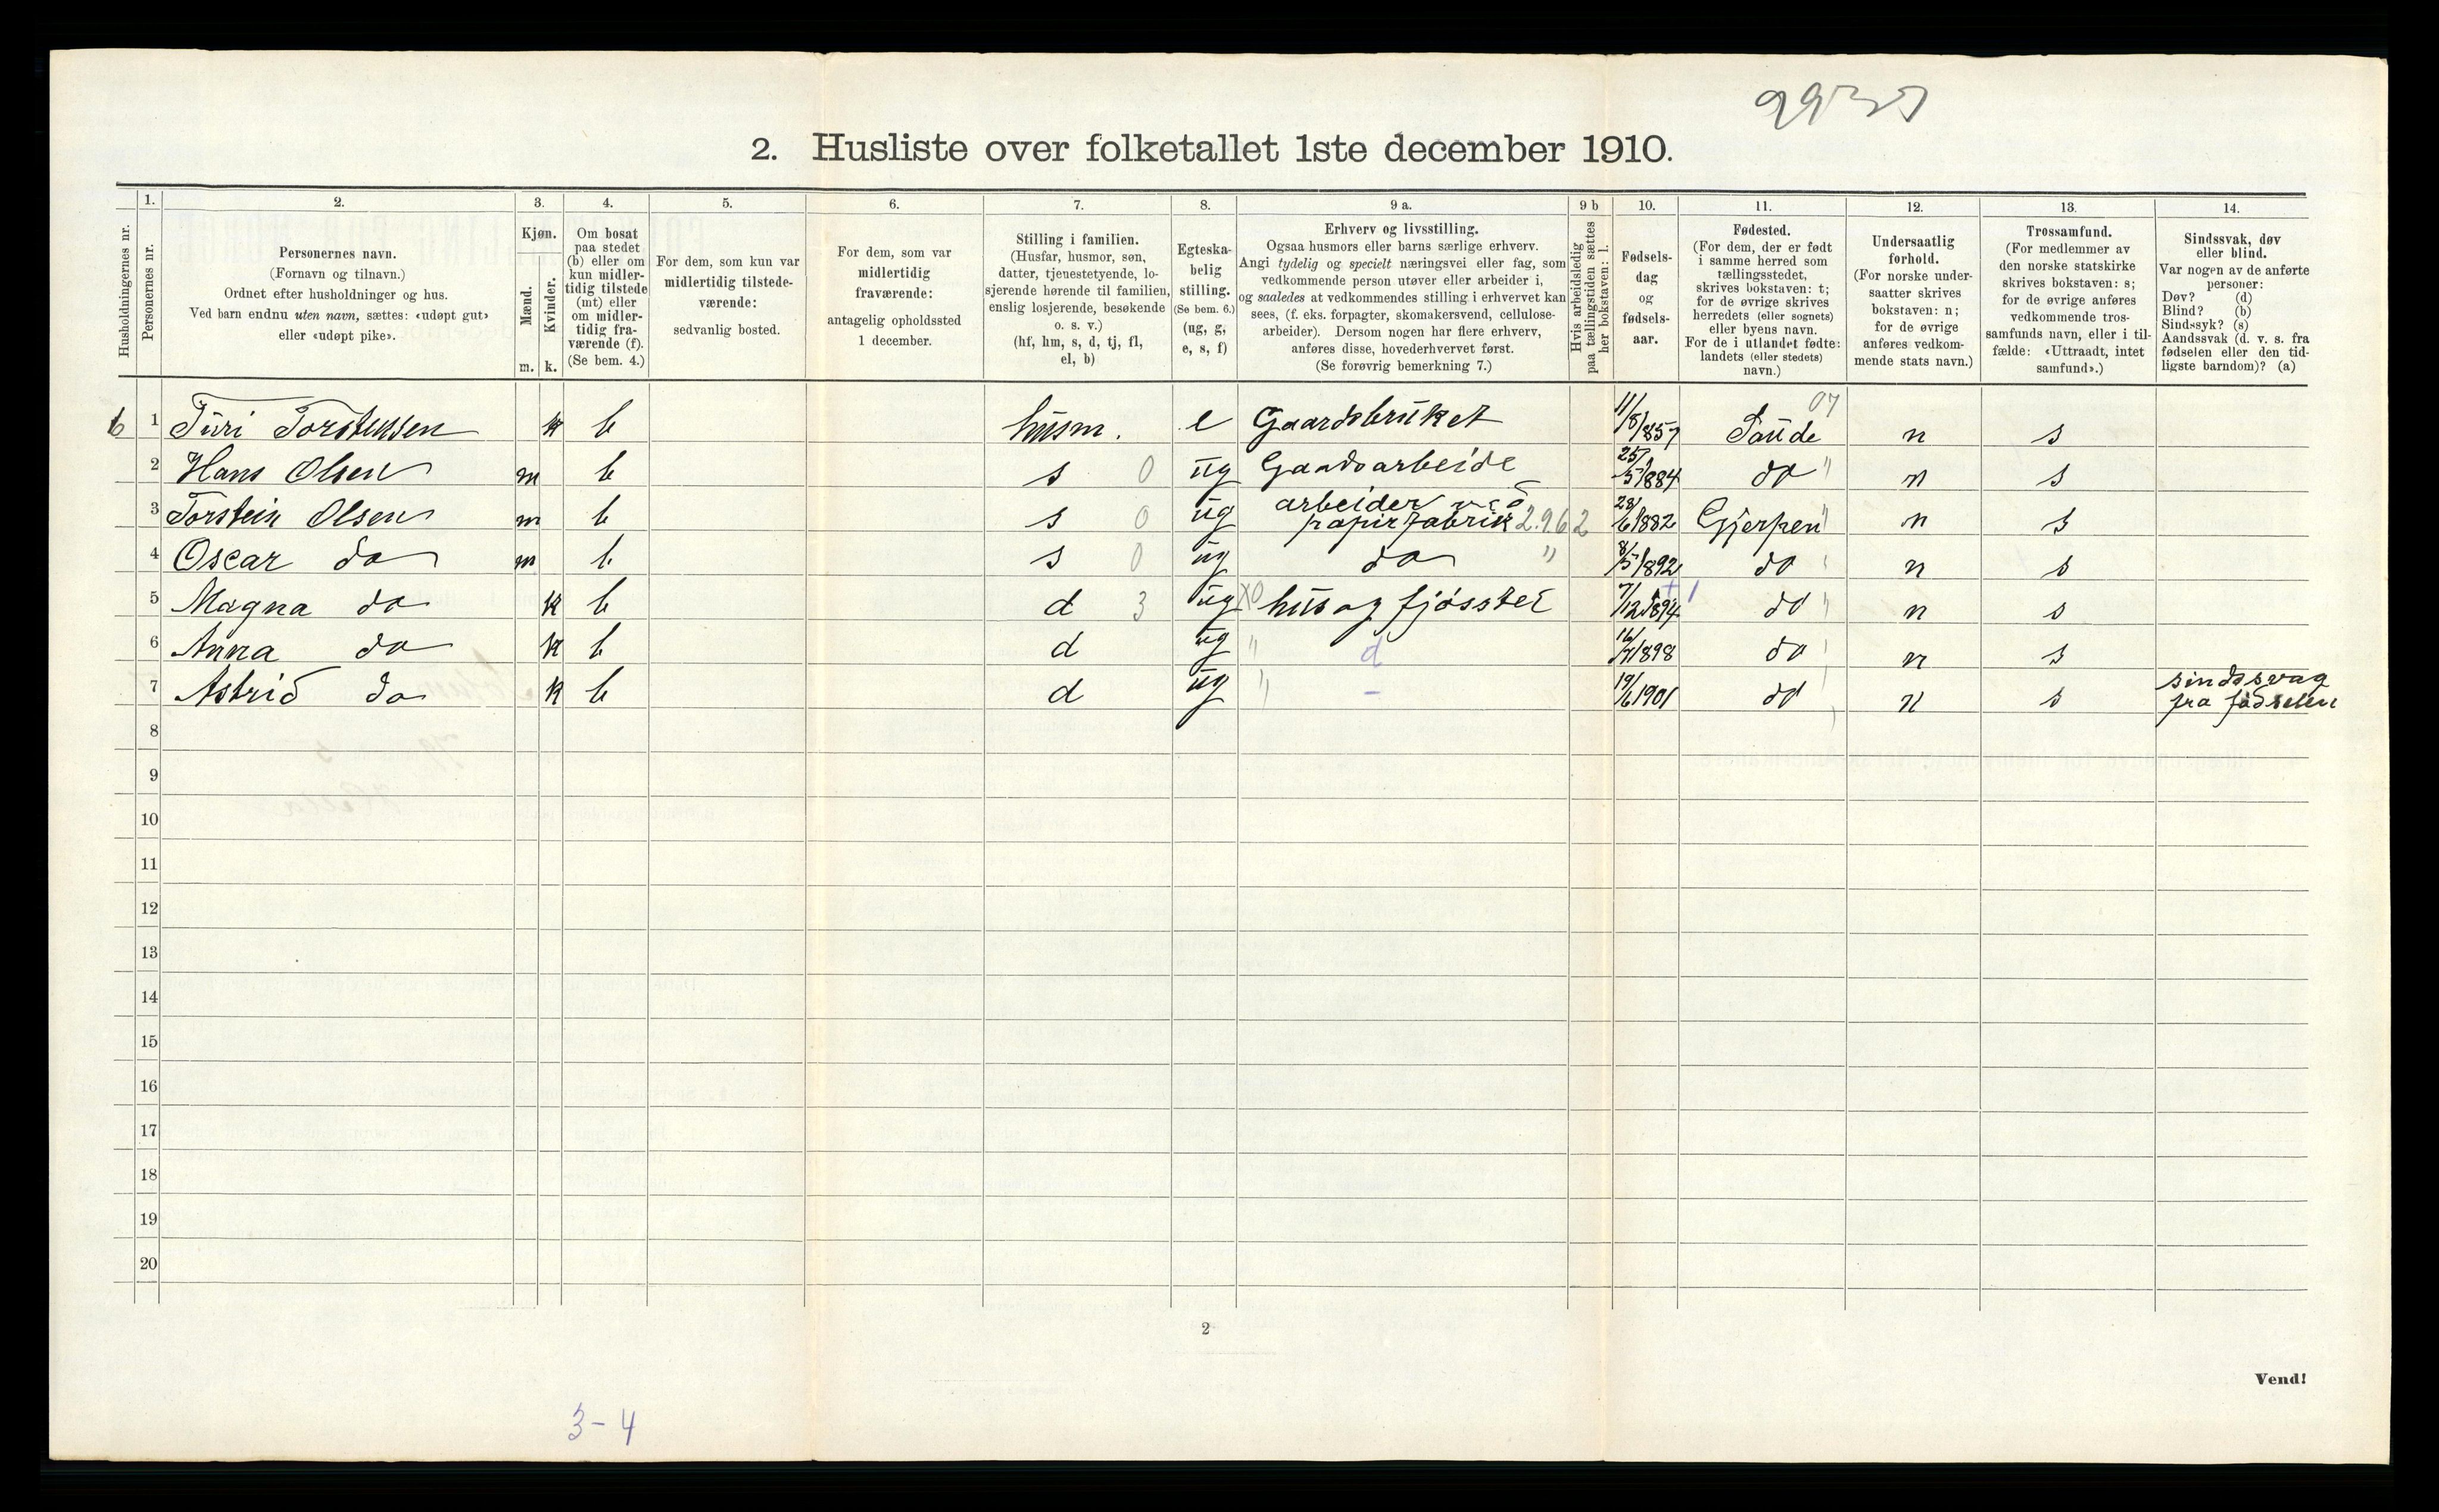 2. Husliste over folketallet 1ste december 1910.
1. 2. 3. 4. 5. 6. 7. 8. 9 a. 9 b 10. 11. 12. 13. 14.
Husholdningernes nr.
Personernes nr.
Personernes navn.
(Fornavn og tilnavn.)
Ordnet efter husholdninger og hus.
Ved barn endnu uten navn, sættes: «udøpt gut»
eller «udøpt pike».
Kjøn.
Mænd.
Kvinder.
m. k.
Om bosat
paa stedet
(b) eller om
kun midler-
tidig tilstede
(mt) eller
om midler-
tidig fra-
værende (f).
(Se bem. 4.)
For dem, som kun var
midlertidig tilstede-
værende:
sedvanlig bosted.
For dem, som var
midlertidig
fraværende:
antagelig opholdssted
1 december.
Stilling i familien.
(Husfar, husmor, søn,
datter, tjenestetyende, lo-
sjerende hørende til familien,
enslig losjerende, besøkende
o. s. v.)
(hf, hm, s, d, tj, fl,
el, b)
Egteska-
belig
stilling.
(Se bem. 6.)
(ug, g,
e, s, f)
Erhverv og livsstilling.
Ogsaa husmors eller barns særlige erhverv.
Angi tydelig og specielt næringsvei eller fag, som
vedkommende person utøver eller arbeider i,
og saaledes at vedkommendes stilling i erhvervet kan
sees, (f. eks. forpagter, skomakersvend, cellulose-
arbeider). Dersom nogen har flere erhverv,
anføres disse, hovederhvervet først.
(Se forøvrig bemerkning 7.)
Hvis arbeidsledig
paa tællingstiden sættes
her bokstaven: l.
Fødsels-
dag
og
fødsels-
aar.
Fødested.
(For dem, der er født
i samme herred som
tællingsstedet,
skrives bokstaven: t;
for de øvrige skrives
herredets (eller sognets)
eller byens navn.
For de i utlandet fødte:
landets (eller stedets)
navn.)
Undersaatlig
forhold.
(For norske under-
saatter skrives
bokstaven: n;
for de øvrige
anføres vedkom-
mende stats navn.)
Trossamfund.
(For medlemmer av
den norske statskirke
skrives bokstaven: s;
for de øvrige anføres
vedkommende tros-
samfunds navn, eller i til-
fælde: «Uttraadt, intet
samfund».)
Sindssvak, døv
eller blind.
Var nogen av de anførte
personer:
Døv? (d)
Blind? (b)
Sindssyk? (s)
Aandssvak (d. v. s. fra
fødselen eller den tid-
ligste barndom)? (a)
07
1 Turi Torstensen k b husm. e Gaardsbruket 11/8/857 Saude n s
2 Hans Olsen m b s 0 ug Gaardsarbeide 25/5/1884 do " n s
3 Torstein Olsen m b s 0 ug arbeider ved papirfabrik 2.962 28/6/1882 Gjerpen " n s
4 Oscar do m b s 0 ug do " 8/5/1892 do n s
5 Magna do k b d 3 ug hus og fjøsstel 7/12/1894 do " n s
6 Anna do k b d ug " d 16/7/1898 do n s
7 Astrid do k b d ug " - 19/6/1901 do n s sindssvag fra fødselen
8
9
10
11
12
13
14
15
16
17
18
19
20
2
Vend!
3-4